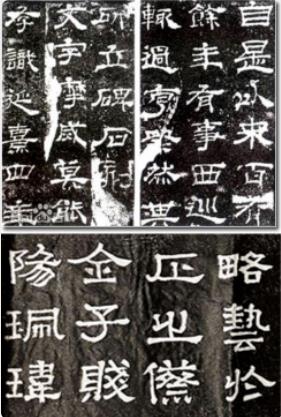 自是以來百有
餘年有事西巡
輒過享祭然其
所立碑石刻
文字摩滅莫能
存識延熹四年
略藝於
之
金子賤
陽珮瑋